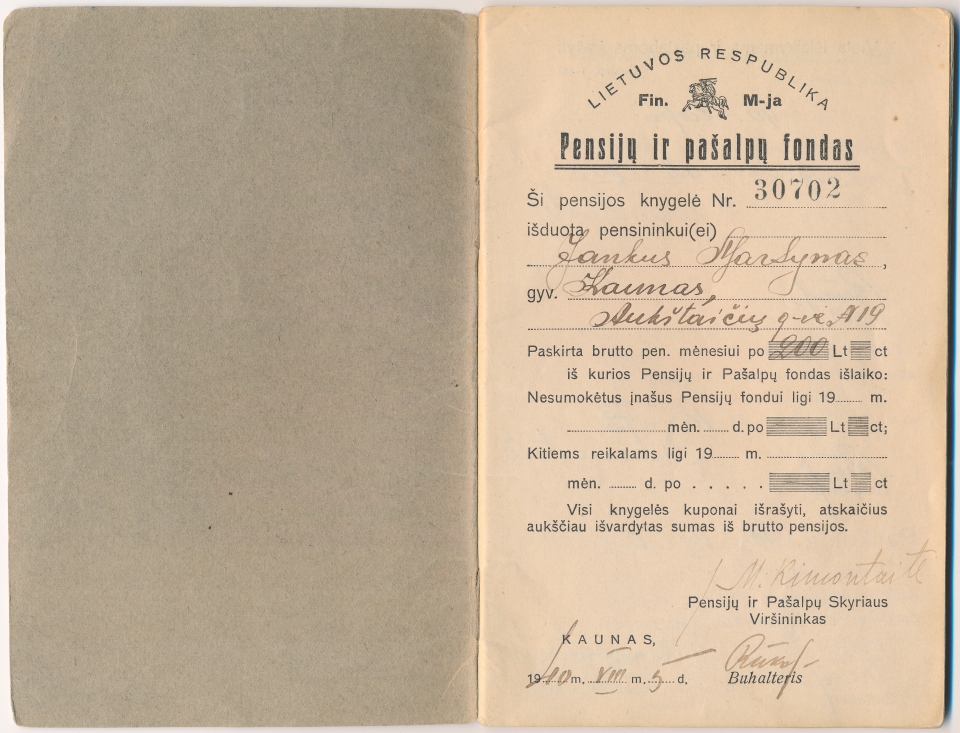 LIETUVOS RESPUBLIKA
Fin. M-ja
Pensijų ir pašalpų fondas
Ši pensijos knygelė Nr. 30702
išduota pensininkui(ei)
Jankus Martynas,
gyv. Kaunas,
Aukštaičių g-vė, N19
Paskirta brutto pen. mėnesiui po 200 Lt ct
iš kurios Pensijų ir Pašalpų fondas išlaiko:
Nesumokėtus įnašus Pensijų fondui ligi 19 m.
mėn. d. po Lt ct;
Kitiems reikalams ligi 19 m.
mėn. d. po . . . . . Lt ct
Visi knygelės kuponai išrašyti, atskaičius
aukščiau išvardytas sumas iš brutto pensijos.
M. Rimontaitė
Pensijų ir Pašalpų Skyriaus
Viršininkas
KAUNAS,
1940 m. VIII m. 5 d.
Buhalteris